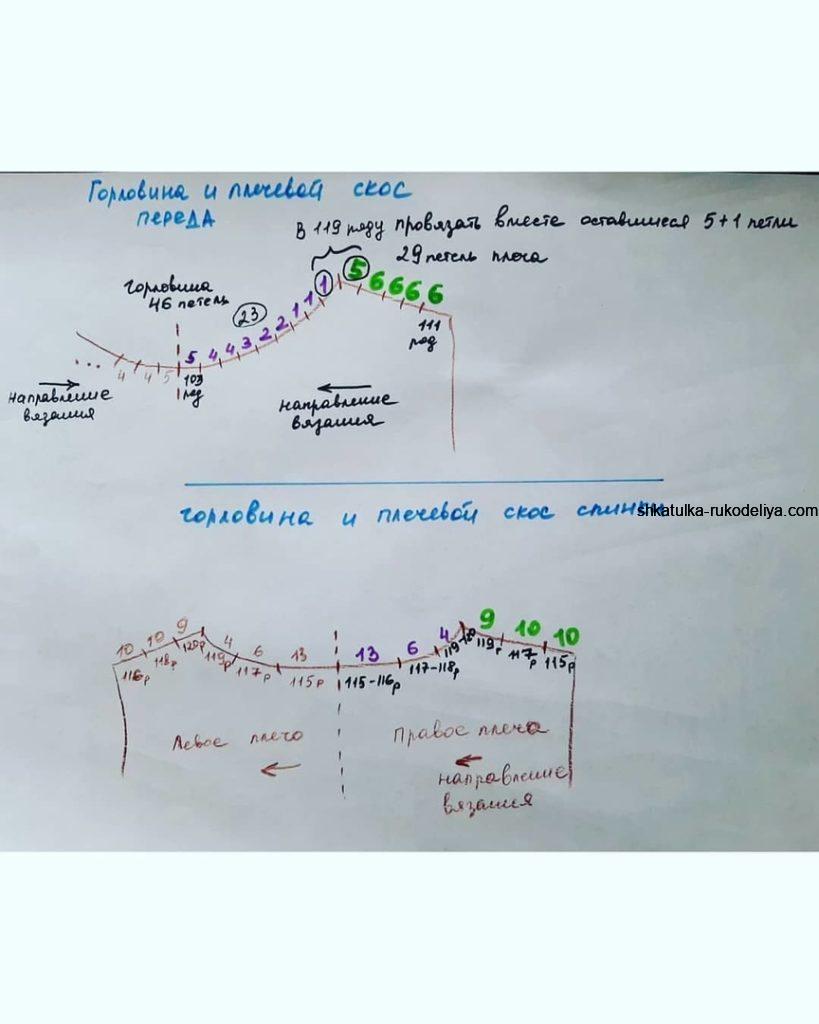 Горловина и плечевой скос
переда
В 119 ряду провязать вместе оставшиеся 5+1 петли
29 петель плеча
горловина
46 петель
23
1 5 6 6 6 6
5 4 4 3 2 2 1 1
111
ряд
... 4 4 5
103
ряд
направление
вязания
направление
вязания
горловина и плечевой скос спинки
shkatulka-rukodeliya.com
10 10 9 4 6 13 13 6 4 9 10 10
116р 118р 120р 119р 117р 115р 115-116р 117-118р 119р 117р 115р
Левое плечо
Правое плеча
направление
вязания